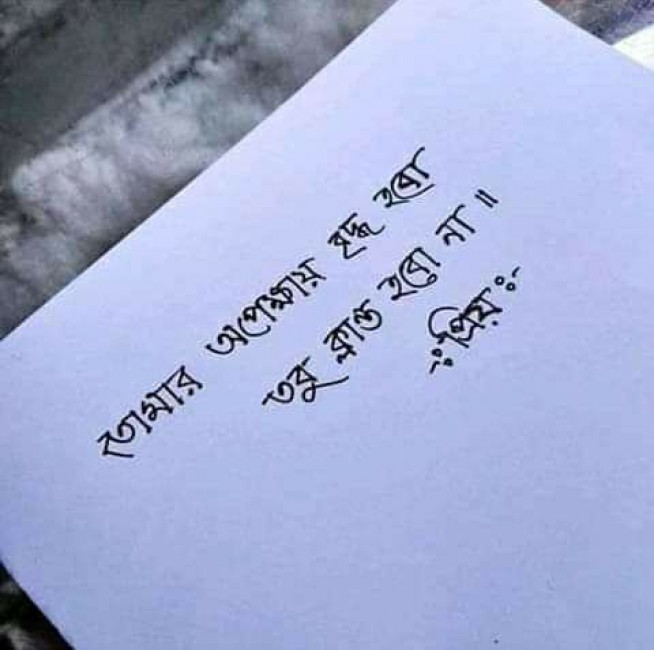 তোমার অপেক্ষায় বৃদ্ধ হবো
তবু ক্লান্ত হবো না ॥
প্রিয়